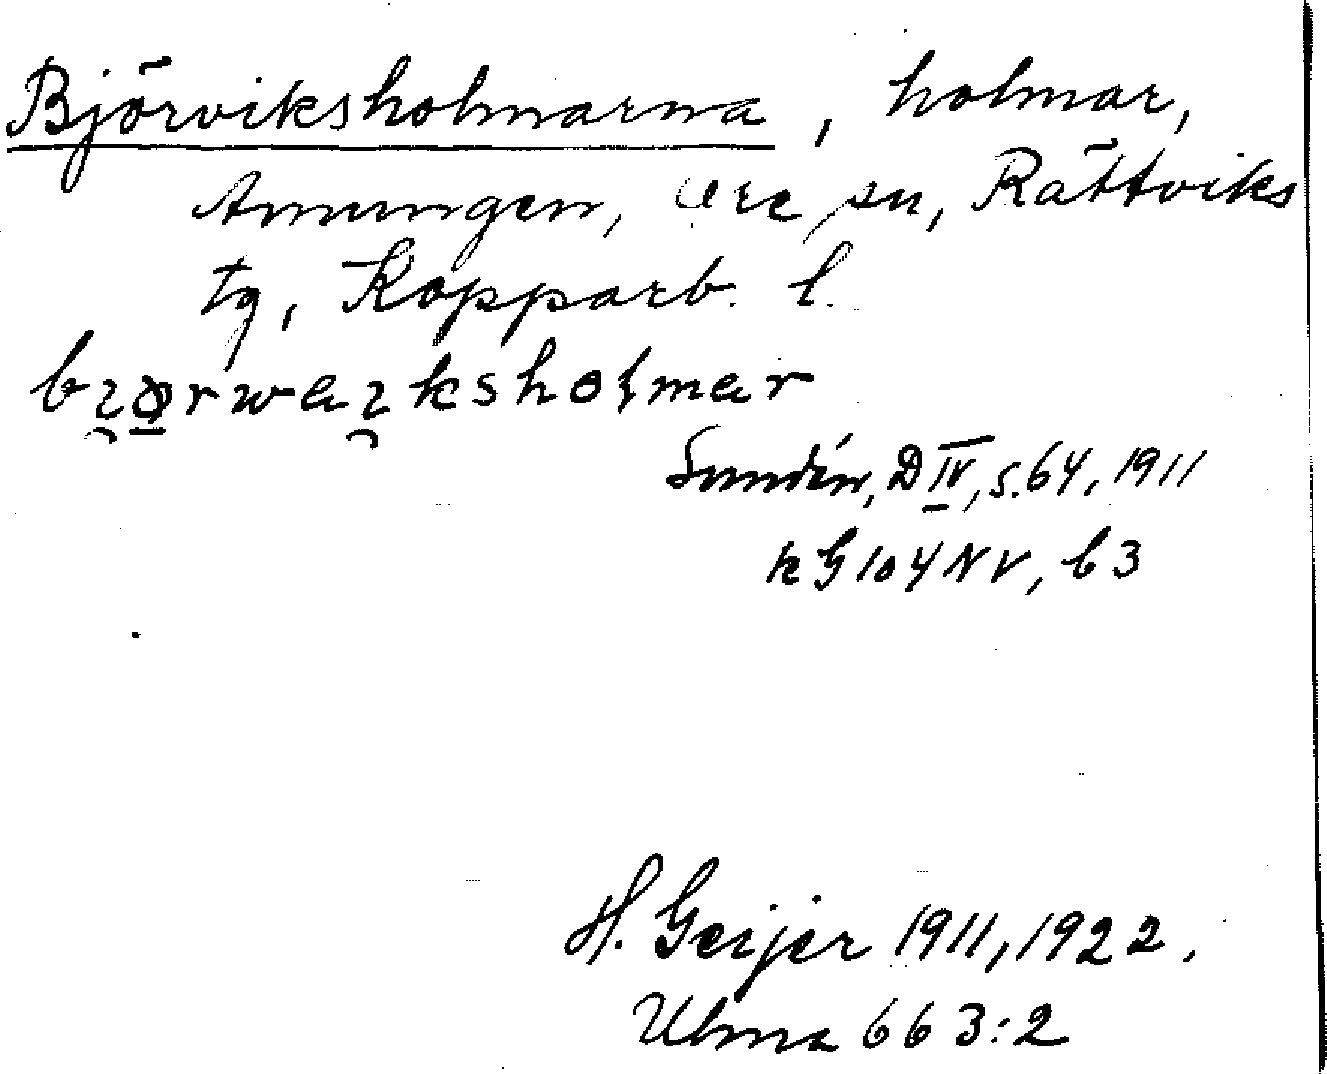 Björviksholmarna, holmar,
Amungen, Ore sn, Rättviks
tg, Kopparb. l.
Sundén, D IV, s. 64, 1911
k G 104 NV, b 3
H. Geijer 1911, 1922.
Ulma 663:2